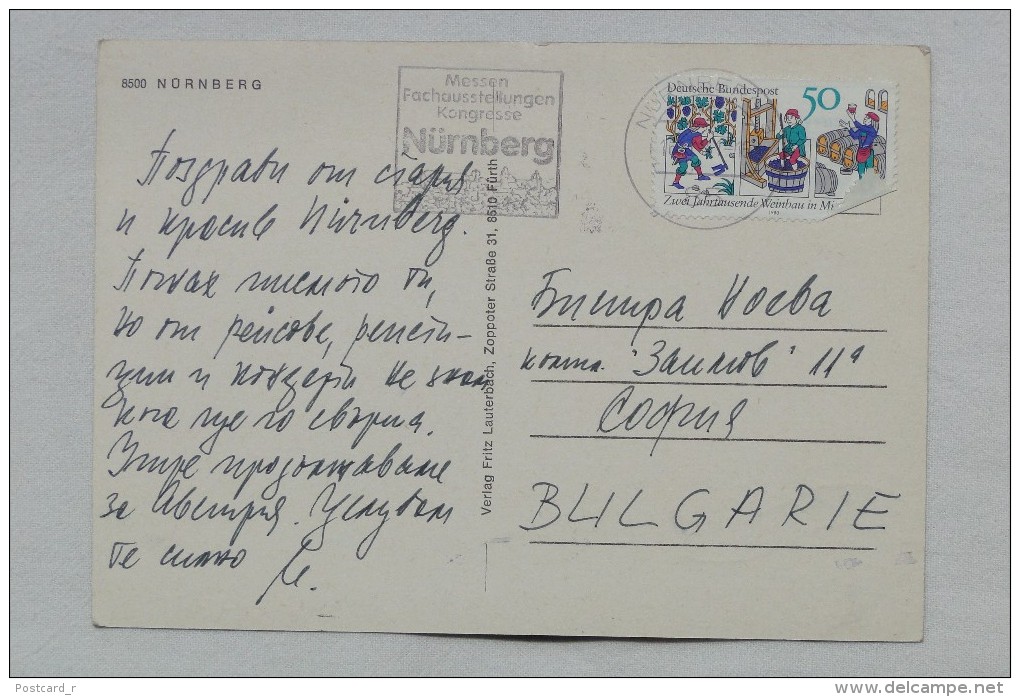 8500 NÜRNBERG
Messen
Fachausstellungen
Kongresse
Nürnberg
Deutsche Bundespost
50
Zwei Jahrtausende Weinbau in Mi
1980
Поздрави от стария
и красив Nürnberg.
писмото ти,
но от рейсове, репети-
ции и концерти не знам
кога ще го свърша.
Утре продължаваме
за Австрия. Целувам
те силно
Verlag Fritz Lauterbach, Zoppoter Straße 31, 8510 Fürth
Бистра Ноева
"Заимов" 11а
София
BULGARIE
Postcard_r
delcampe.net